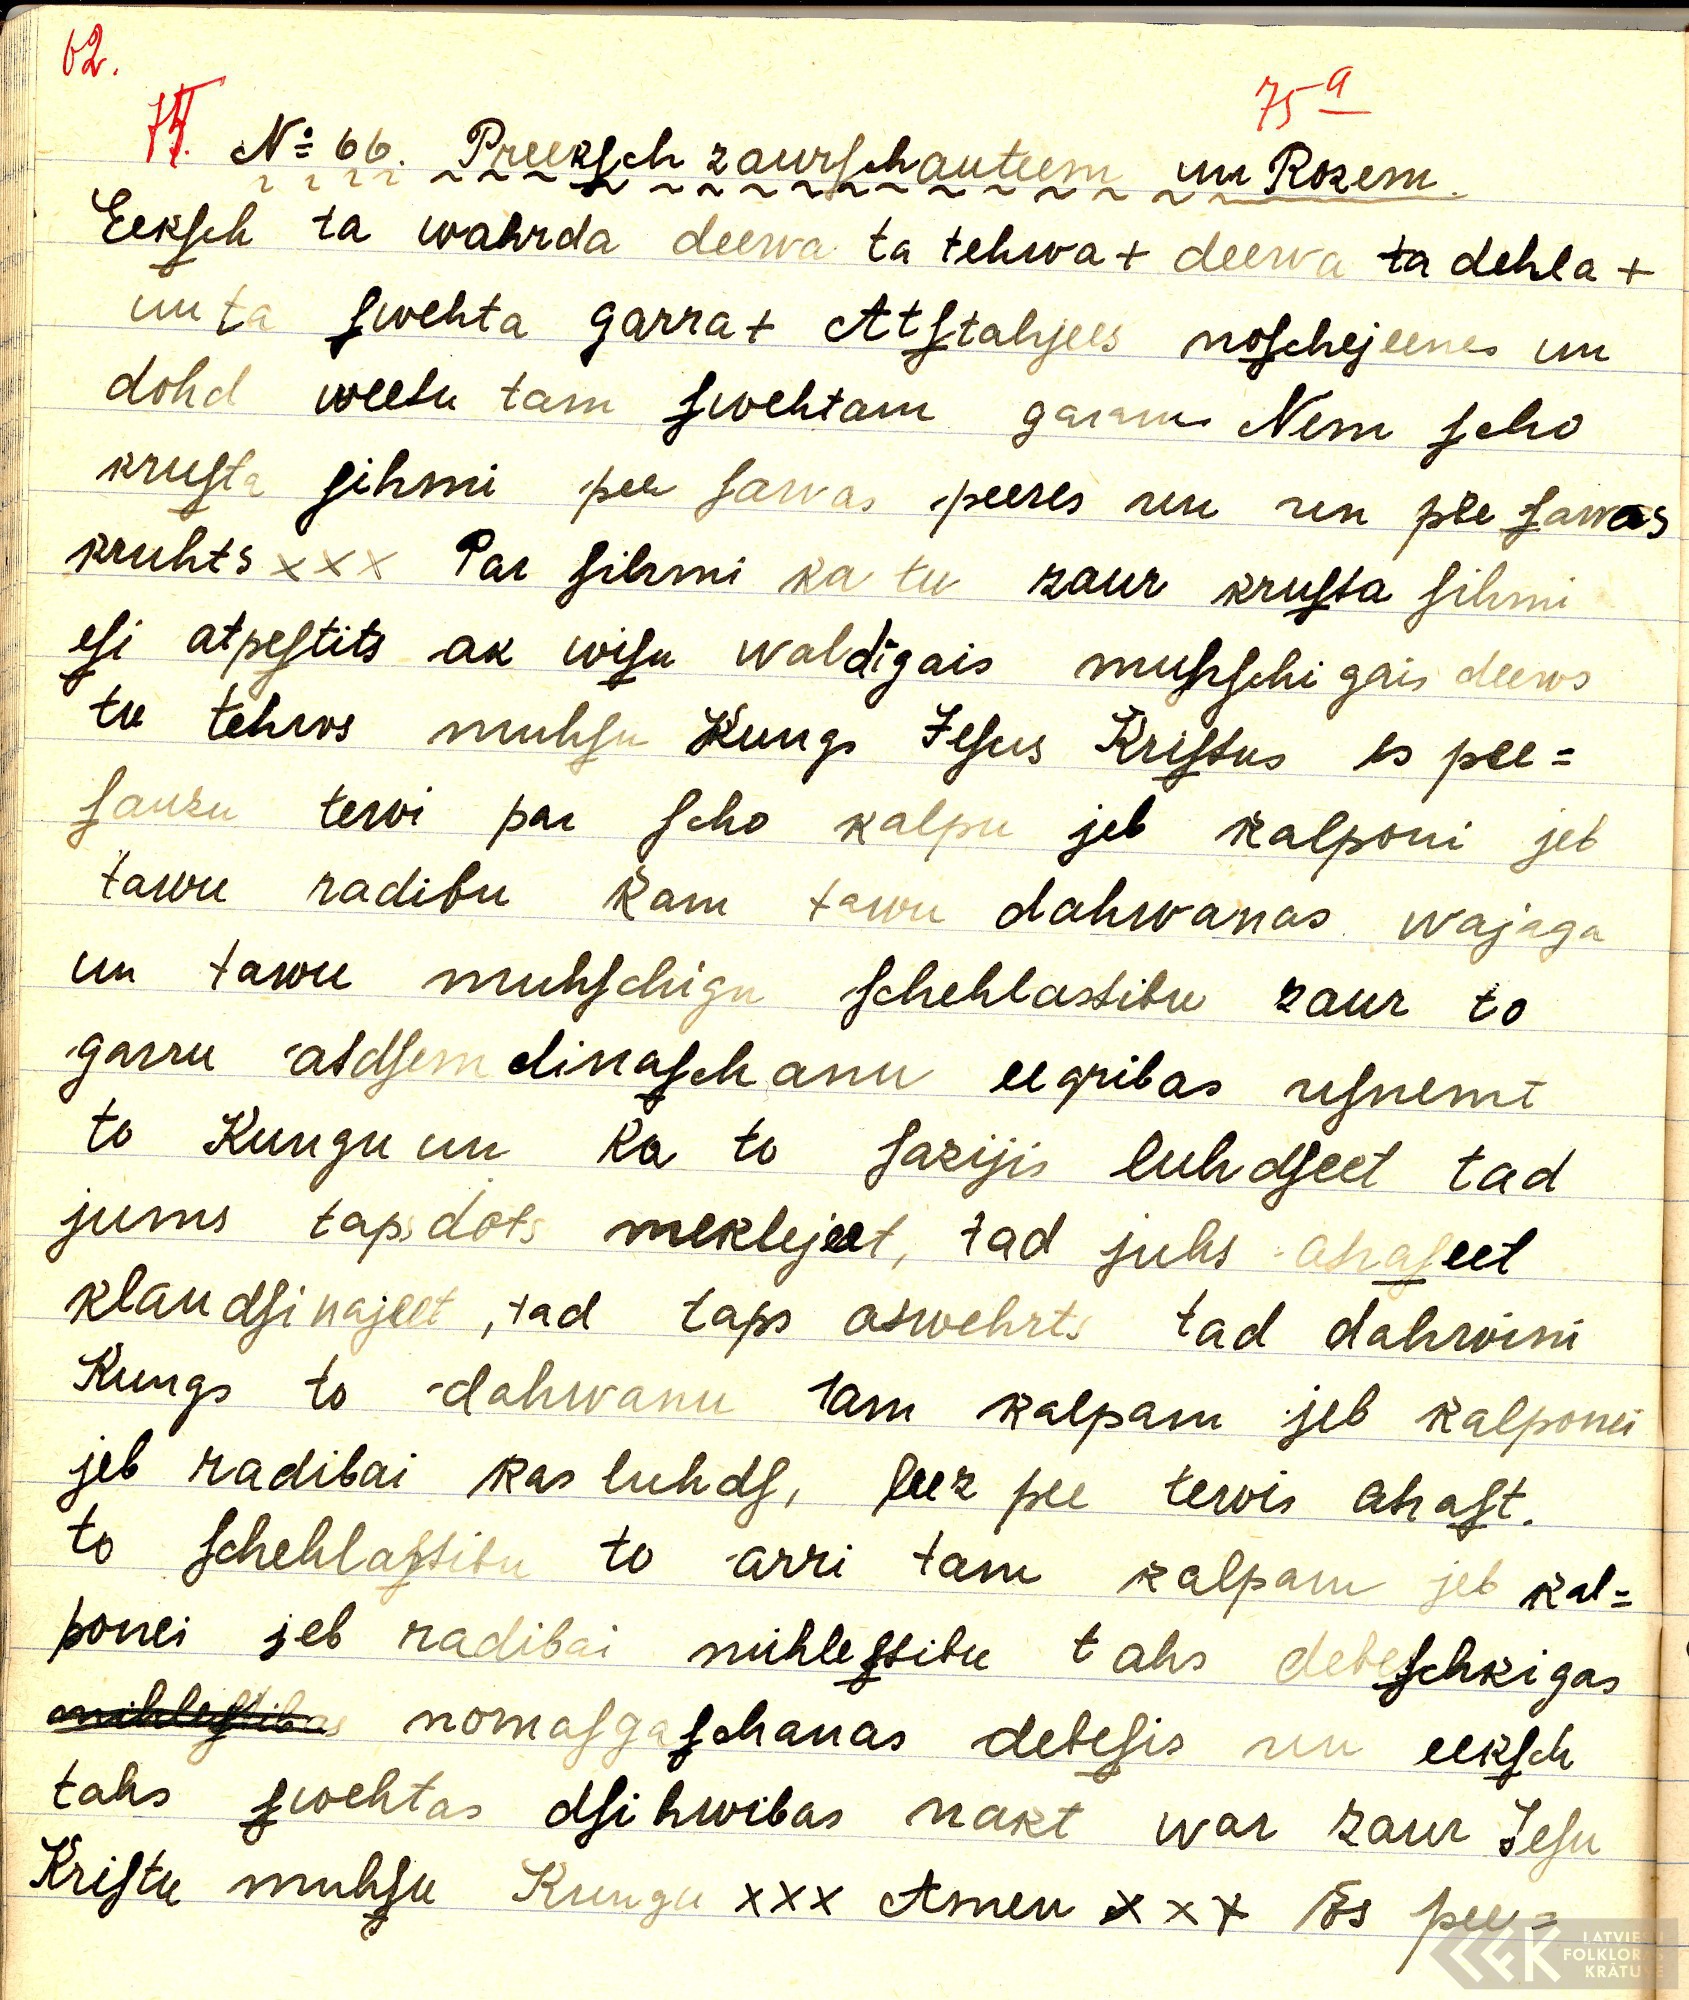 62.
75 a
74. № 66. Preekſch zaurſchauteem un Rozem.
Eekſch ta wahrda deewa ta tehwa + deewa ta dehla +
un ta ſwehta garra + Atſtahjees noſchejeenes un
dohd weetu tam ſwehtam garam Nem ſcho
kruſta ſihmi pee ſawas peeres un un pee ſawas
kruhts xxx Par ſihmi ka tu zaur kruſta ſihmi
eſi atpeſtits ak wiſu waldigais muhſchigais deews
tu tehws muhſu Kungs Jeſus Kriſtus es pee=
ſauzu tewi par ſcho kalpu jeb kalponi jeb
tawu radibu kam tawu dahwanas wajaga
un tawu muhſchigu ſchehlastibu zaur to
garru atdſemdinaſchanu eegribas uſnemt
to Kungu un ka to ſazijis luhdſeet tad
jums taps dots meklejeet, tad juhs atraſeet
klaudſinajeet, tad taps atwehrts tad dahwini
Kungs to dahwanu tam kalpam jeb kalponei
jeb radibai kas luhdſ, leez pee tewis atraſt.
to ſchehlaſtibu to arri tam kalpam jeb kal=
ponei jeb radibai mihleſtibu tahs debeſchkigas
mihleſtibas nomaſgaſchanas debeſis un eekſch
tahs ſwehtas dſihwibas nakt war zaur Jeſu
Kriſtu muhſu Kungu xxx Amen xxx Es pee=
LATVIEŠU
FOLKLORAS
KRĀTUVE